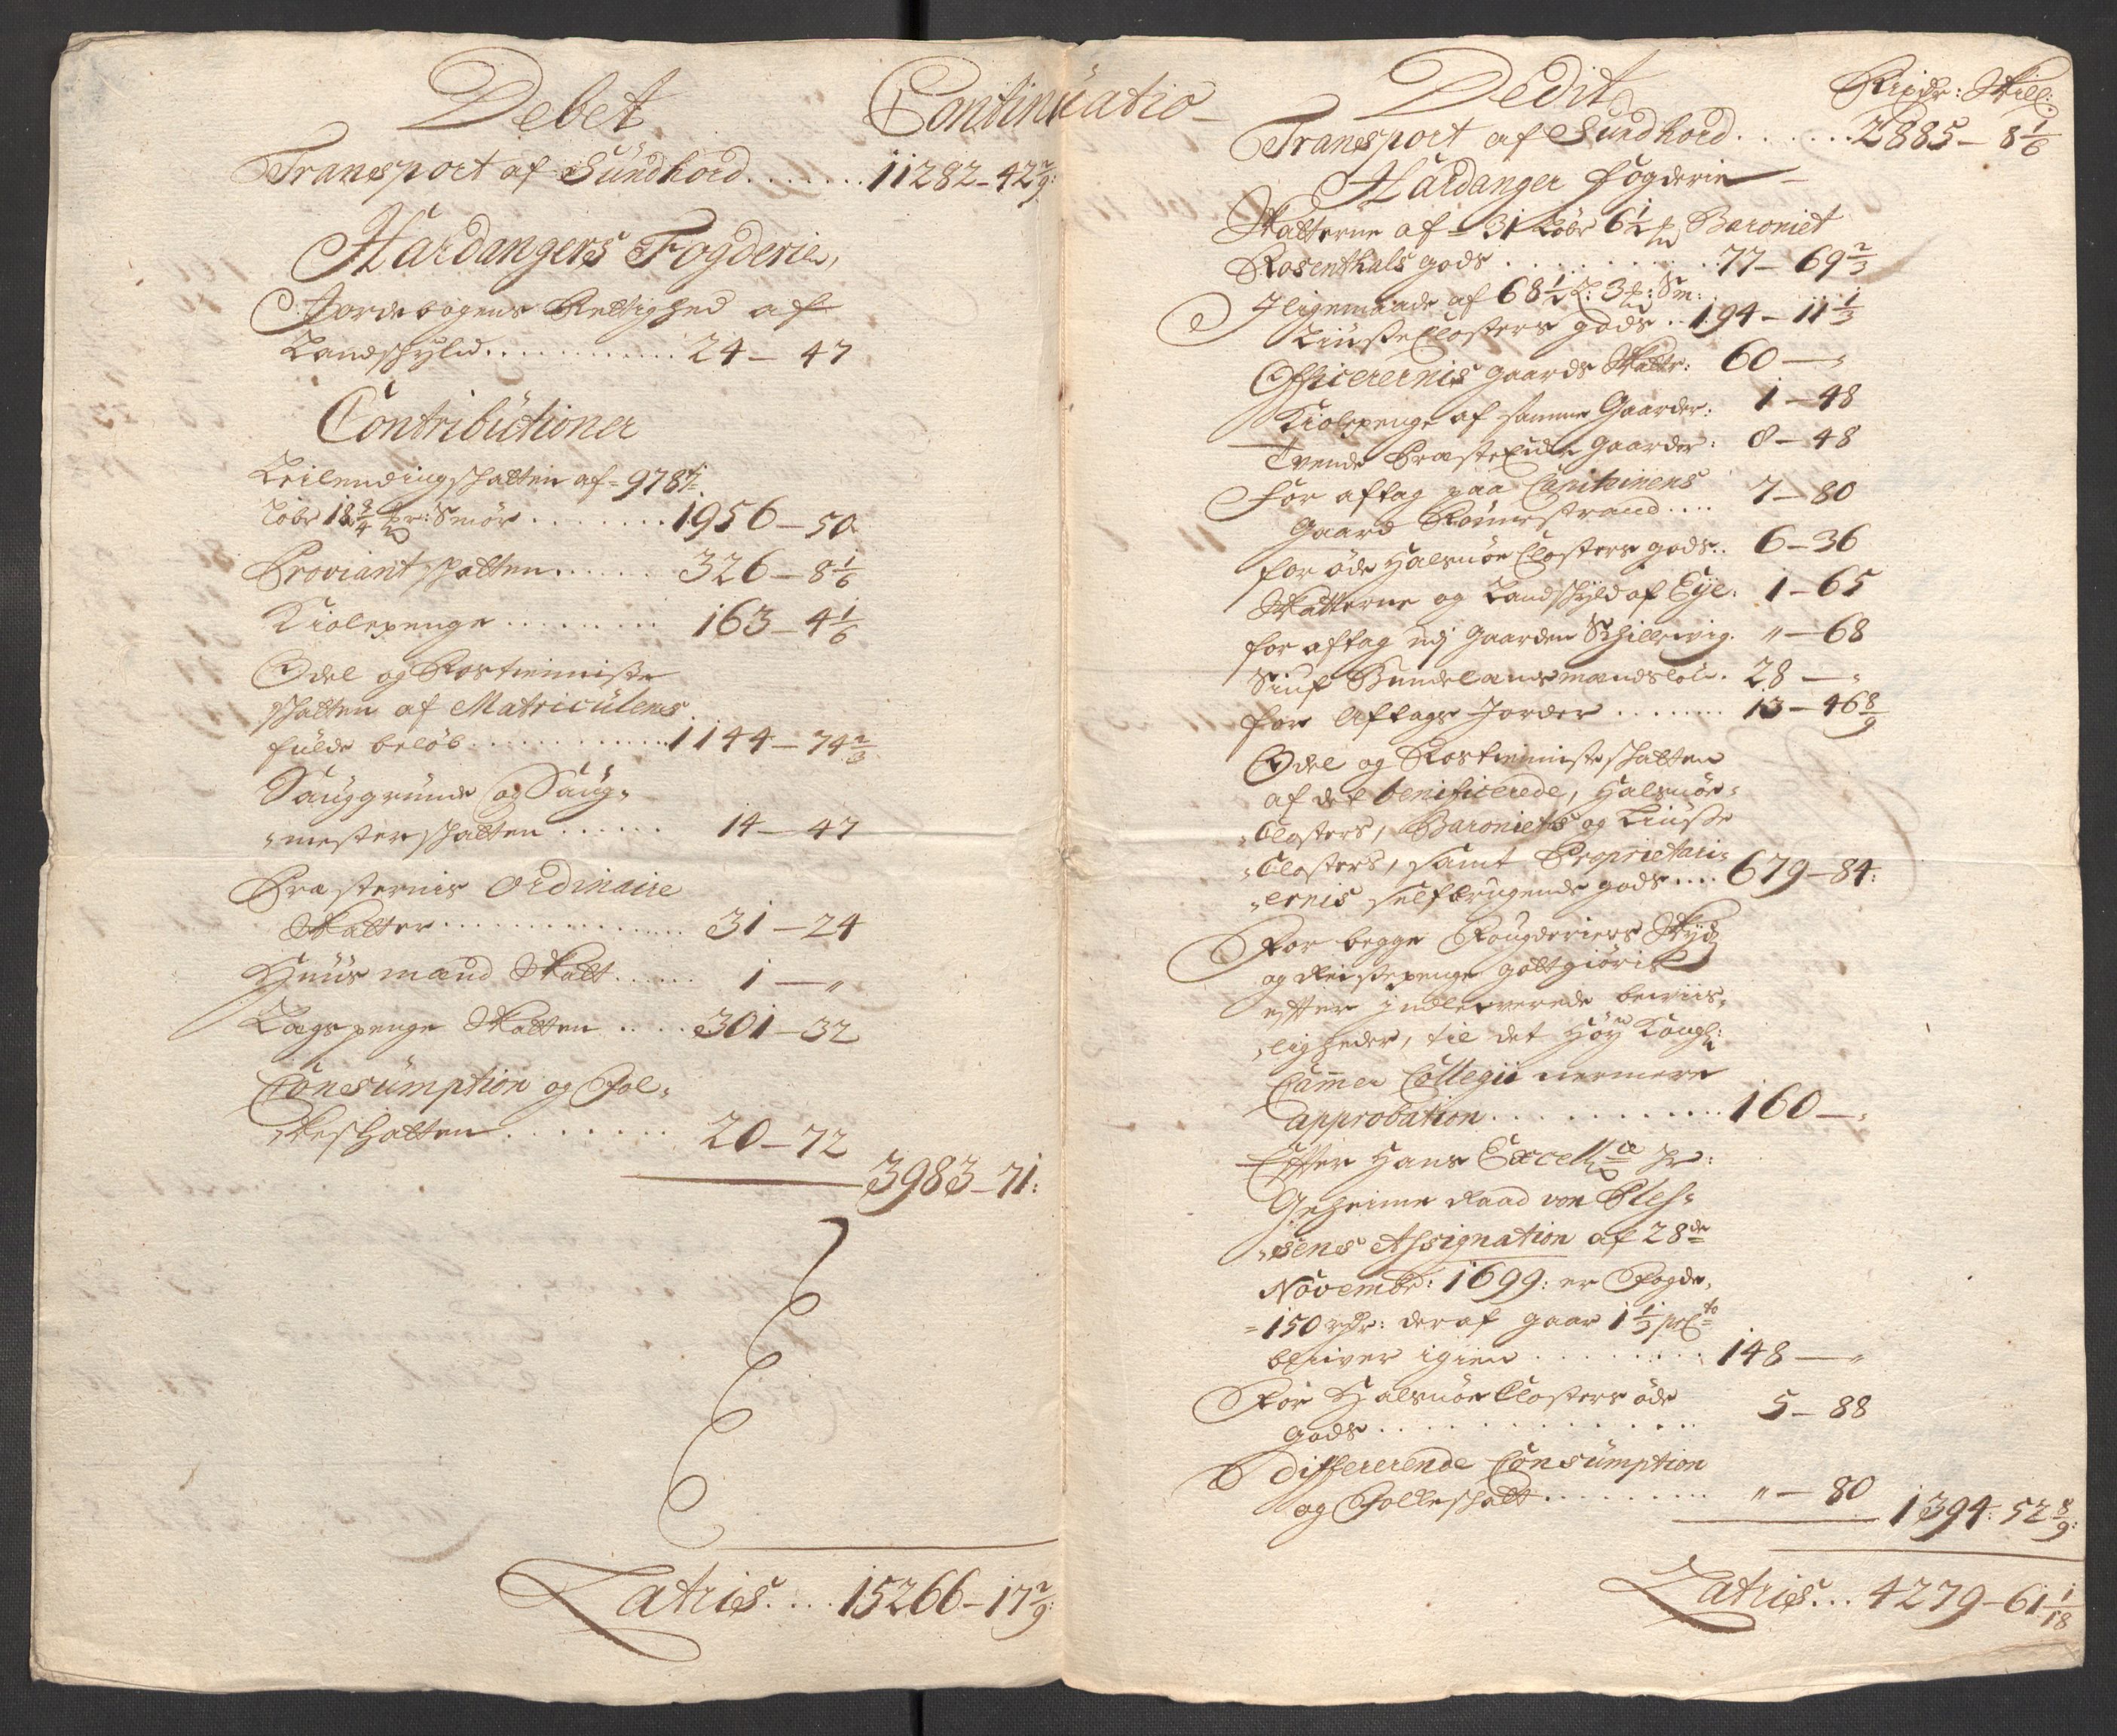 Debet
Continuatio
Transport af Sundhord . . . . . . . 11282 - 42 2/9:
Hardangers Fogderie,
Jordebogens Rettighed af
Landschyld . . . . . . . . . . . . 24 - 47
Contributioner
Leilendingschatten af 978
Løbr 18 3/4 Smør . . . . . . . . 1956 - 50
Proviantschatten . . . . . 326 - 8 1/6
Kiolepenge . . . . . . . . . 163 - 4 1/6
Odel og Rostieniste
schatten af Matriculens
fulde beløb . . . . . . . . . . . . 1144 - 74 2/3
Sauggrunde og Saug-
mesterschatten . . . . . . 14 - 47
Præsternis Ordinaire
Skatter . . . . . . . . . . . . . . 31 - 24
Huusmand Skatt . . . . . . 1 - "
Lægspenge Skatten . . . . 301 - 32
Consumption og Fol-
keschatten . . . . . . . . 20 - 72
3983 - 71:
Latris . . . . 15266 - 17 2/9:
Dedit
Rixdr: Skill:
Transport af Sundhord . . . . . . 2885 - 8 1/6
Hardanger Fogderie
Skatterne af 31 Løbr 6 1/2 Baroniet
Rosenthals gods . . . . . . . . . 77 - 69 2/3
Iligemaade af 68 1/2 L: 3 : Sm:
Liuse Closters gods . . 194 - 11 1/3
Officerernis gaards Skatter: 60 - "
Kiolepenge af samme Gaarder: 1 - 48
Tvende Præsteenke gaarder: 8 - 48
For aftag paa Capitainens
gaard Rønnestrand . . . . 7 - 80
for øde Halsnøe Closters gods . . 6 - 36
Skatterne og Landschyld af Eye. 1 - 65
for aftag udj gaarden . " - 68
Bundelandsmandsløn. 28 - "
for Aftags Jorder . . . . . . . 13 - 46 8/9
Odel og Rostienisteschatten
af det benificerede, Halsnøe-
Closters, Baroniets og Liuse
Closters, samt Proprietari-
ernis selfbrugende gods . . . . 679 - 84:
For begge Fougderiers Skyds
og Reisepenge gottgiøris
efter indleverede beviis-
ligheder, til det Høy Kongl:
Cammer Collegii nermere
approbation . . . . . . . . . . . . 160 - "
Efter Hans Excellce Hr:
Geheime Raad von Ples-
sens Assignation af 28de
Novembr: 1699: er Fogde,
150 rdr: deraf gaar 1 1/3 prCto
bliver igien . . . . . . . . . 148 - "
For Halsnøe Closters øde
gods . . . . . . . . . . . . . . 5 - 88
Differerende Consumption
og Folkeschatt . . . . . . . . . " - 80
1394 - 52 8/9:
Latris . . . 4279 - 61 1/18